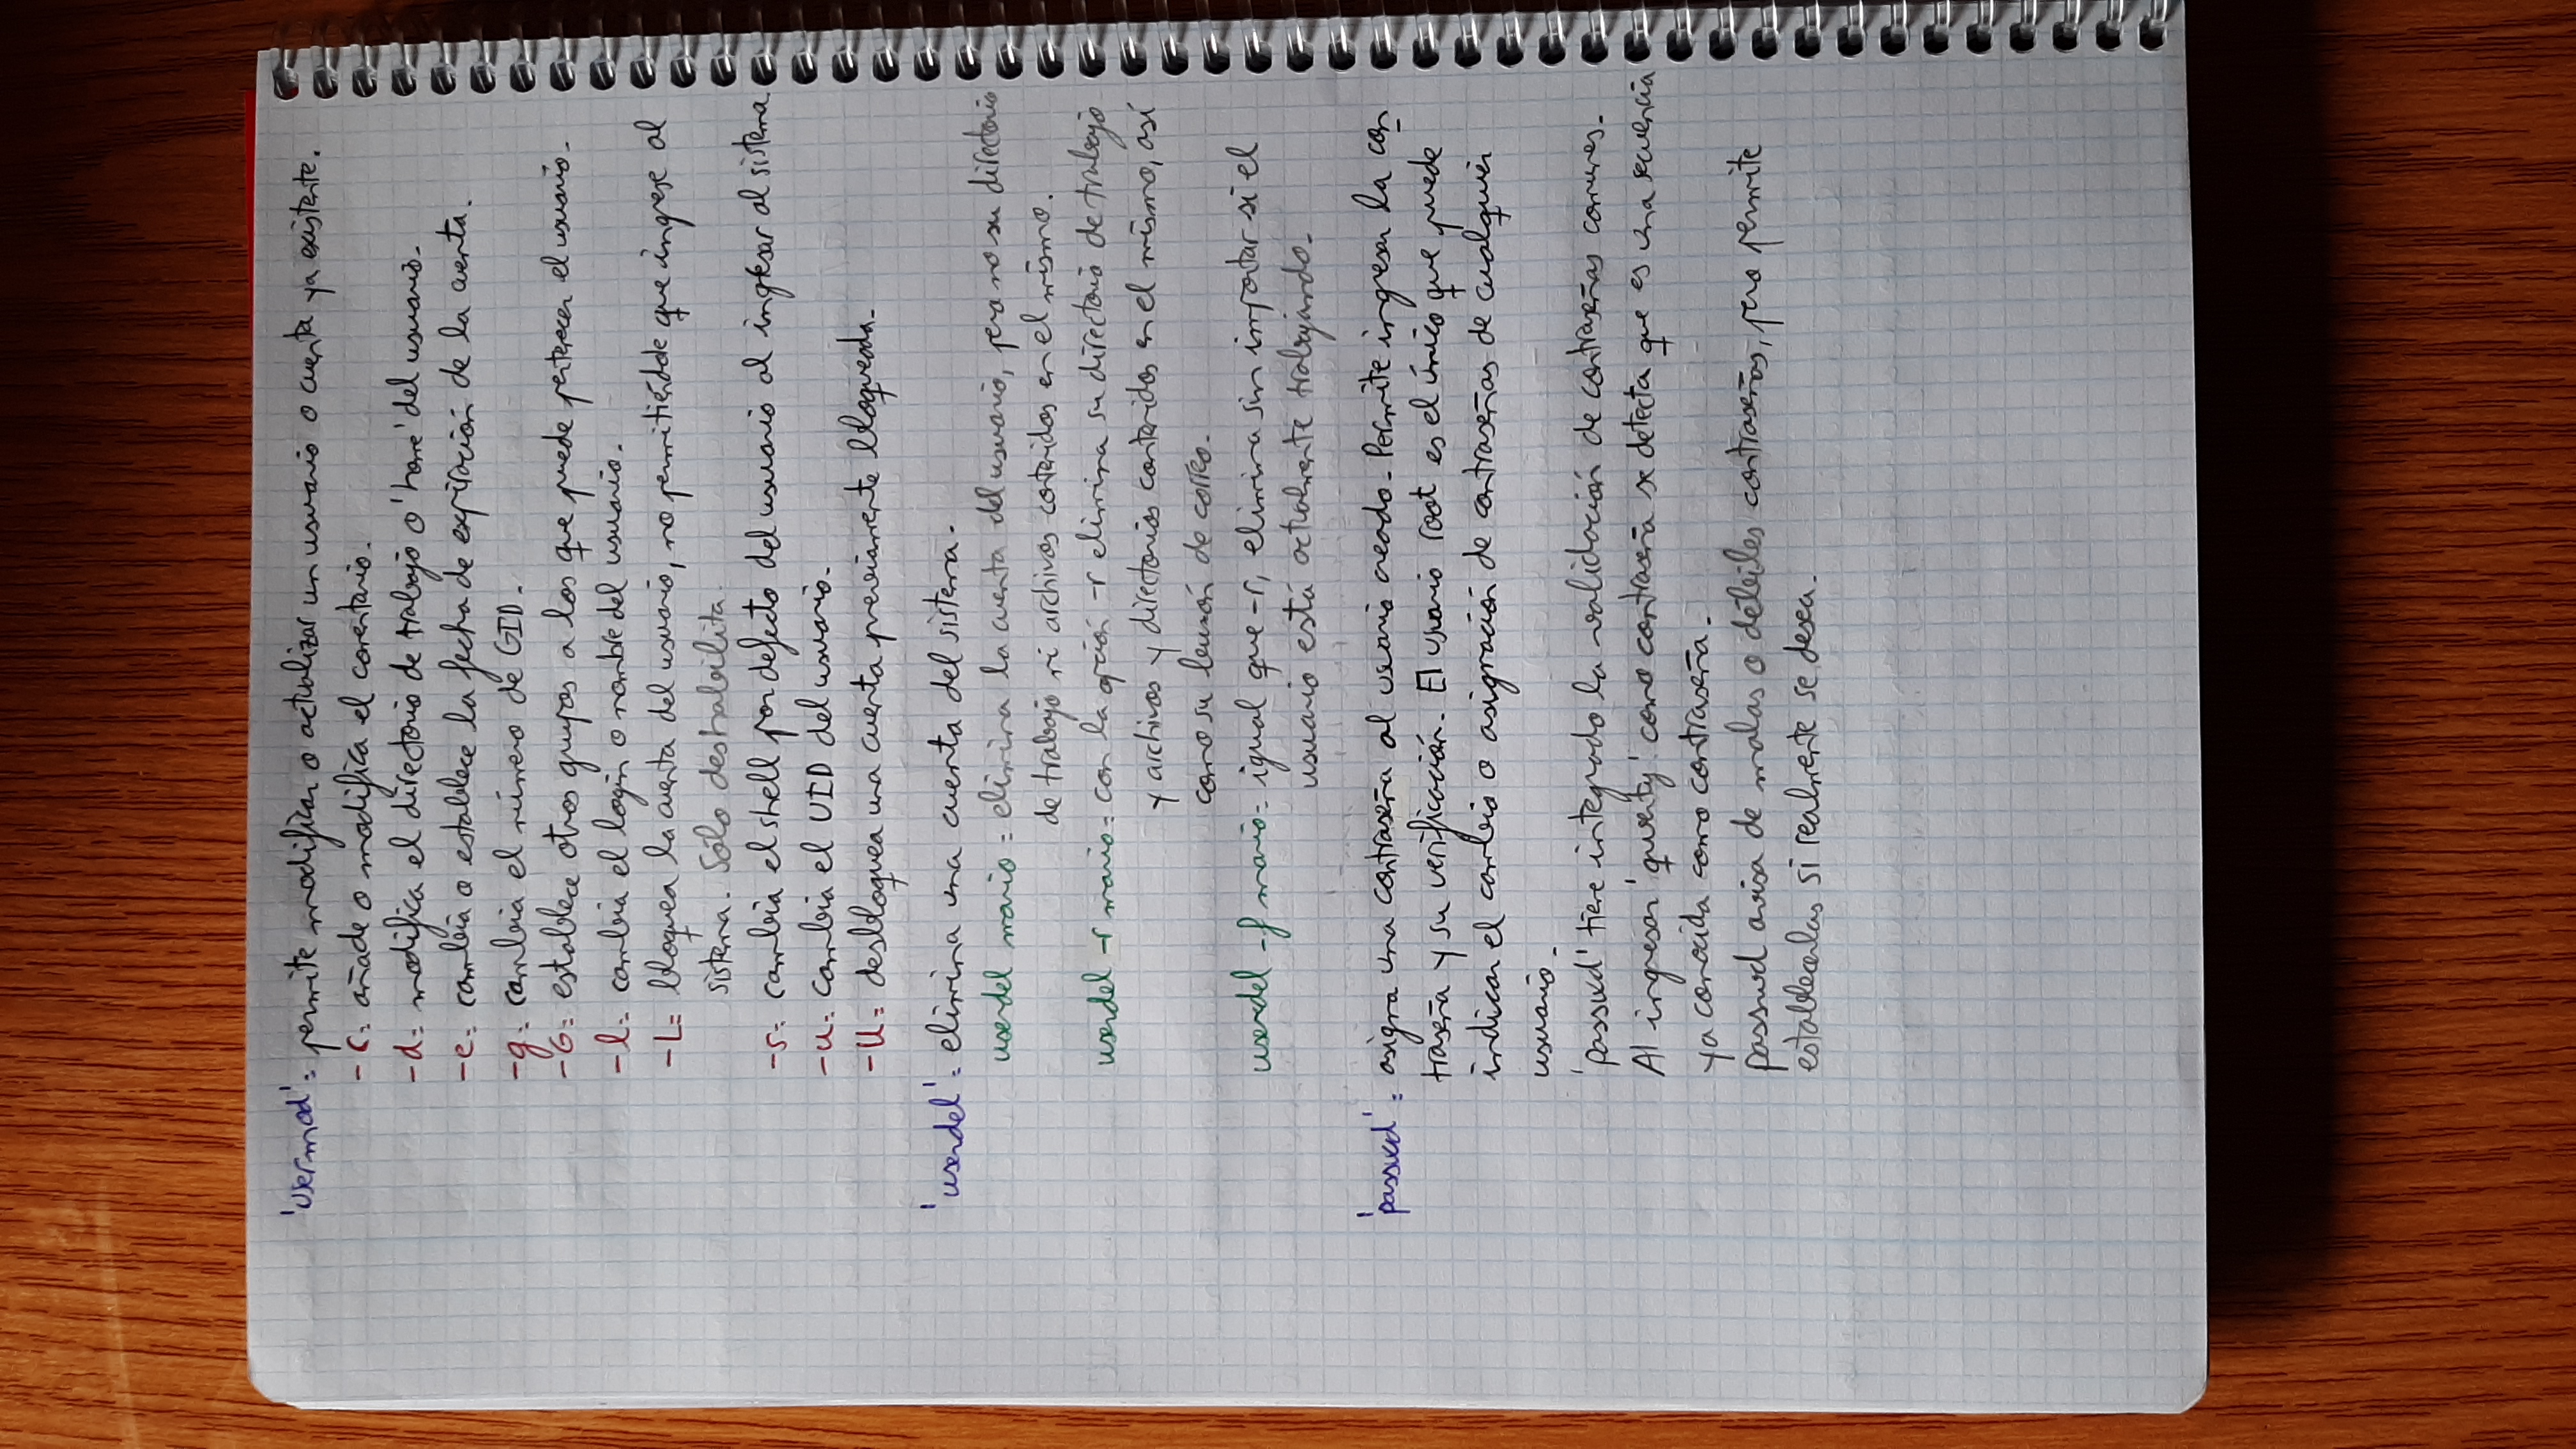 'usermod': permite modificar o actualizar un usuario o cuenta ya existente.
-c: añade o modifica el comentario.
-d: modifica el directorio de trabajo o 'home' del usuario.
-e: cambia o establece la fecha de expiración de la cuenta.
-g: cambia el número de GID.
-G: establece otros grupos a los que puede pertenecer el usuario.
-l: cambia el login o nombre del usuario.
-L: bloquea la cuenta del usuario, no permitiéndole que ingrese al
sistema. Sólo deshabilita.
-s: cambia el shell por defecto del usuario al ingresar al sistema.
-u: cambia el UID del usuario.
-U: desbloquea una cuenta previamente bloqueada.
'userdel': elimina una cuenta del sistema.
userdel mario: elimina la cuenta del usuario, pero no su directorio
de trabajo ni archivos contenidos en el mismo.
userdel -r mario: con la opción -r elimina su directorio de trabajo
y archivos y directorios contenidos en el mismo, así
como su buzón de correo.
userdel -f mario: igual que -r, elimina sin importar si el
usuario está actualmente trabajando.
'passwd': asigna una contraseña al usuario creado. Permite ingresar la con
traseña y su verificación. El usuario root es el único que puede
indicar el cambio o asignación de contraseñas de cualquier
usuario.
'passwd' tiene integrado la validación de contraseñas comunes.
Al ingresar 'qwerty' como contraseña se detecta que es una secuencia
ya conocida como contraseña.
passwd avisa de malas o débiles contraseñas, pero permite
establecerlas si realmente se desea.